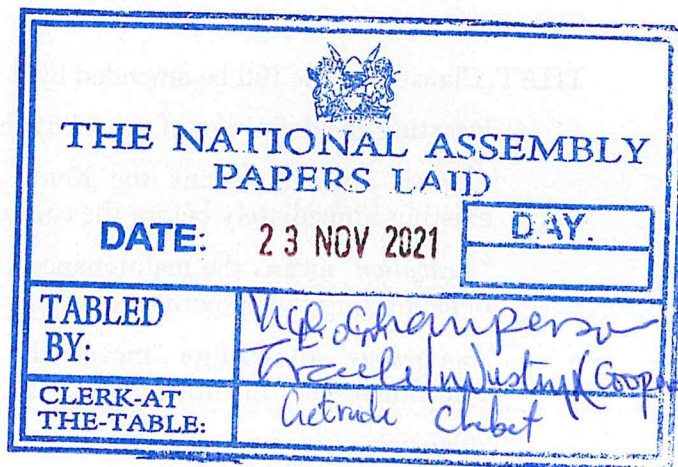 THE NATIONAL ASSEMBLY
PAPERS LAID
DATE: 23 NOV 2021
DAY.
TABLED
BY:
Vice Chairperson
Trade Industry & Coope
CLERK-AT
THE-TABLE:
Getrude Chebet